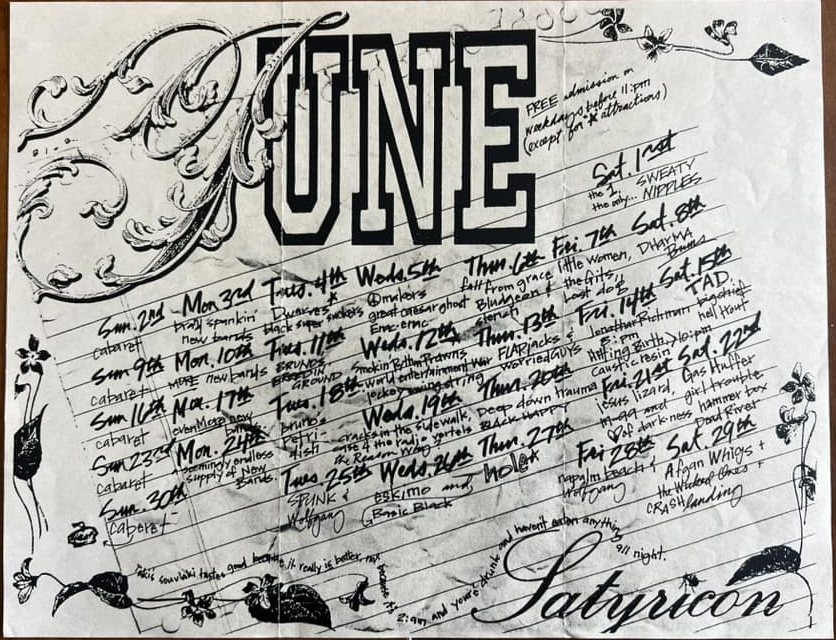 JUNE
FREE admission on
weekdays before 11:pm
(except for * attractions)
Sat. 1rst
the 1.
the only... SWEATY
NIPPLES
Sun. 2nd
cabaret
Mon. 3rd
brand spankin'
new bands
Tues. 4th
Dwarves *
black super suckers
Weds. 5th
makers
great caesar ghost
Thur. 6th
fall from grace
Bludgeon &
stench
Fri. 7th
little women,
the grits,
Lost dog
Sat. 8th
DHARMA
Bums
Sun 9th
cabaret
Mon. 10th
MORE new bands
Tues. 11th
BRUNOS
GROUND
Weds. 12th
Smokin Rythm Prawns
world entertainment War
Thur. 13th
FLAPJacks &
worried GUYS
Fri. 14th
Jonathan Richman
8:pm
Hitting Birth, >10:pm
caustic resin
Sat. 15th
TAD.
big chief
hell trout
Sun 16th
cabaret
Mon. 17th
even More new
bands
Tues. 18th
bruno's
petri-
dish
Weds. 19th
cracks in the sidewalk,
ease & the radio
Thur. 20th
Deep down trauma
BLACK Happy
Fri. 21st
jesus lizard,
m-99 and
♡ of darkness
Sat. 22nd
Gas Huffer
girl trouble
hammer box
Dead River
Sun 23rd
cabaret
Mon. 24th
seemingly endless
supply of New
Bands.
Tues. 25th
SPUNK &
Wolfgang
Weds. 26th
eskimo and
Basic Black
Thur. 27th
hole *
Fri 28th
napalm beach &
Wolfgang
Sat. 29th
Afgan Whigs +
the Wicked Ones +
CRASH landing
Sun. 30th
Caberet
souvlaki tastes good because it really is better, not because it's 2:am and you're drunk and haven't eaten anything all night.
Satyricon